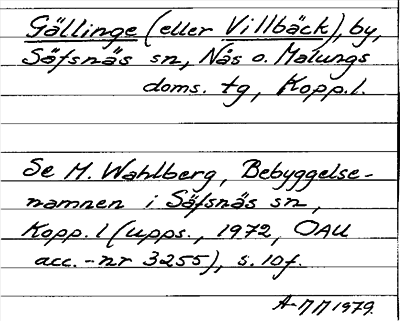 Gällinge (eller Villbäck), by,
Säfsnäs sn, Nås o. Malungs
doms. tg, Kopp. l.
Se M. Wahlberg, Bebyggelse-
namnen i Säfsnäs sn,
Kopp. l (Upps., 1972, OAU
acc.-nr 3255), s. 10f.
1979.